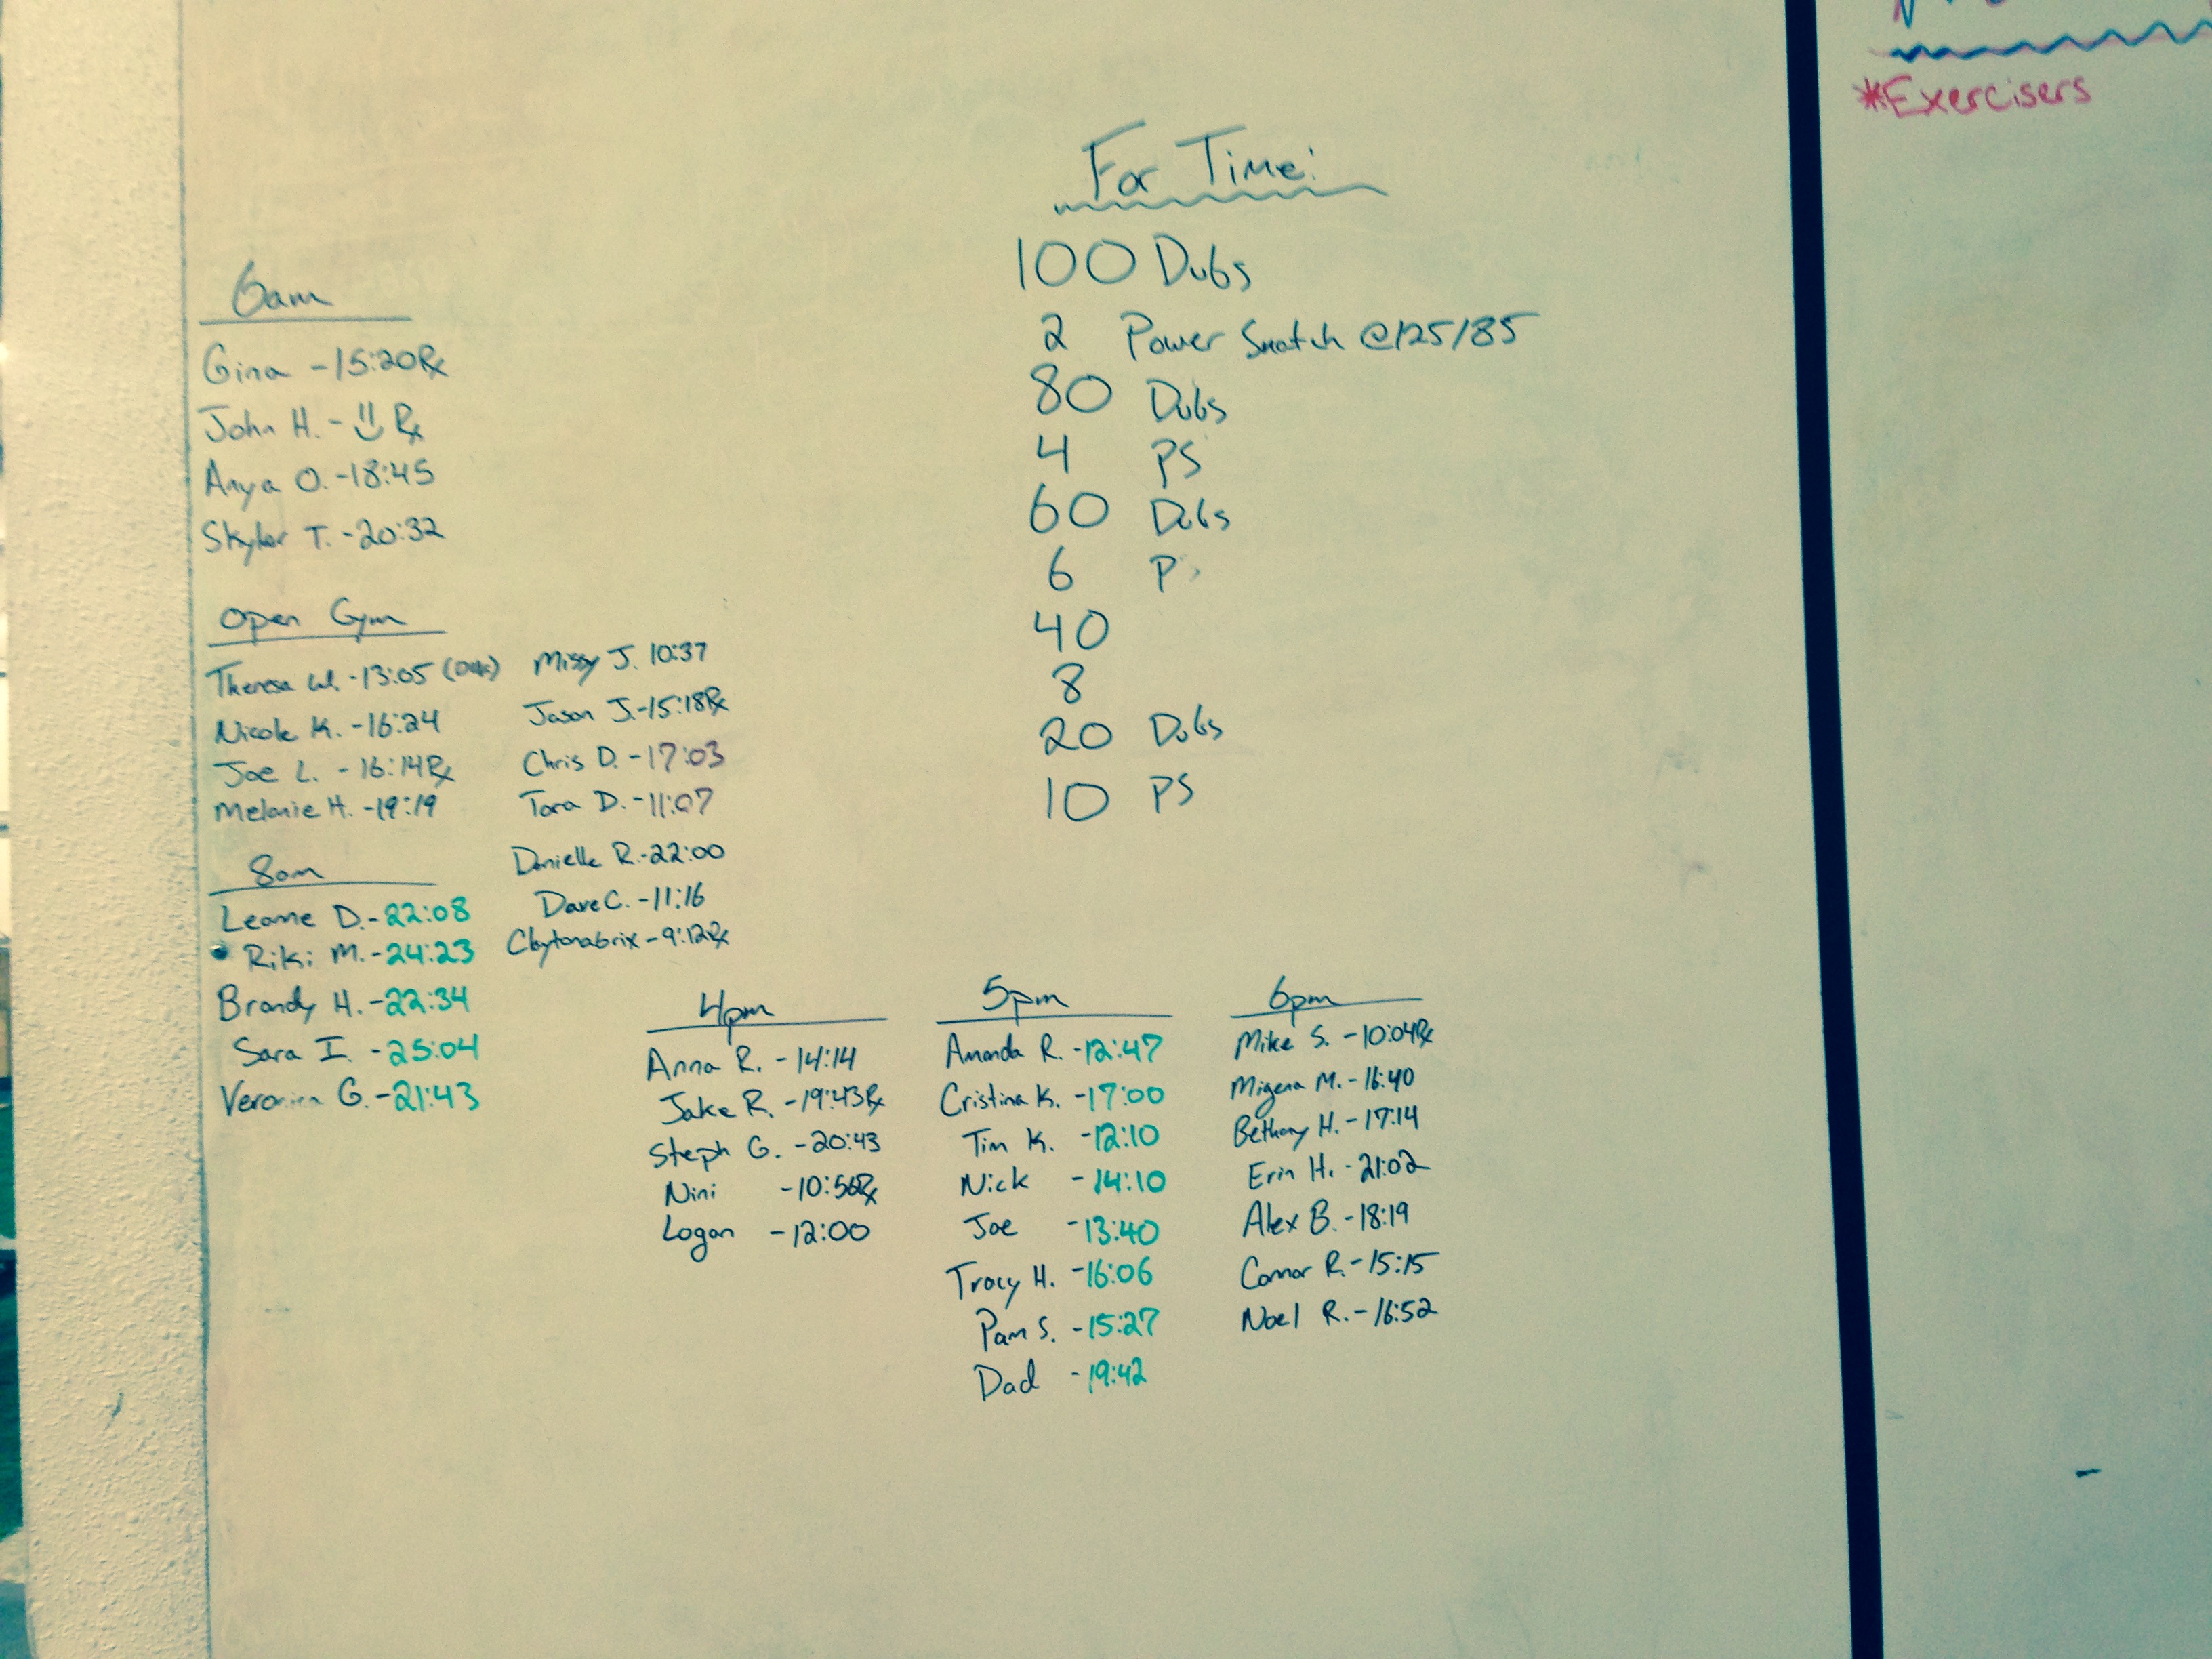 *Exercisers
For Time:
100 Dubs
2 Power Snatch @125/85
80 Dubs
4 PS
60 Dubs
6 P
40
8
20 Dubs
10 PS
6am
Gina -15:20Rx
John H. - Rx
Anya O. -18:45
Skyler T. -20:32
Open Gym
Theresa W. -13:05
Nicole K. -16:24
Joe L. - 16:14Rx
Melanie H. -19:19
Missy J. 10:37
Jason J. -15:18Rx
Chris D. -17:03
Tara D. -11:07
Danielle R. -22:00
Dave C. -11:16
Claytonabrix -9:12Rx
8am
Leanne D. -22:08
Riki M. -24:23
Brandy H. -22:34
Sara I. -25:04
Veronica G. -21:43
4pm
Anna R. -14:14
Jake R. -19:43Rx
Steph G. -20:43
Nini -10:56Rx
Logan -12:00
5pm
Amanda R. -12:47
Cristina K. -17:00
Tim K. -12:10
Nick -14:10
Joe -13:40
Tracy H. -16:06
Pam S. -15:27
Dad -19:42
6pm
Mike S. -10:04Rx
Migena M. -16:40
Bethany H. -17:14
Erin H. -21:02
Alex B. -18:19
Connor R. -15:15
Noel R. -16:52